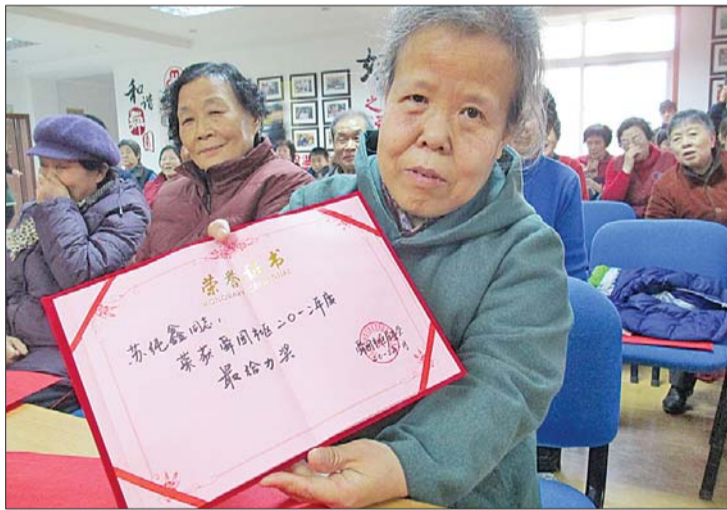 和谐
之
荣誉证书
苏纯鑫同志：
荣获舜园社区二〇一二年度
最给力奖